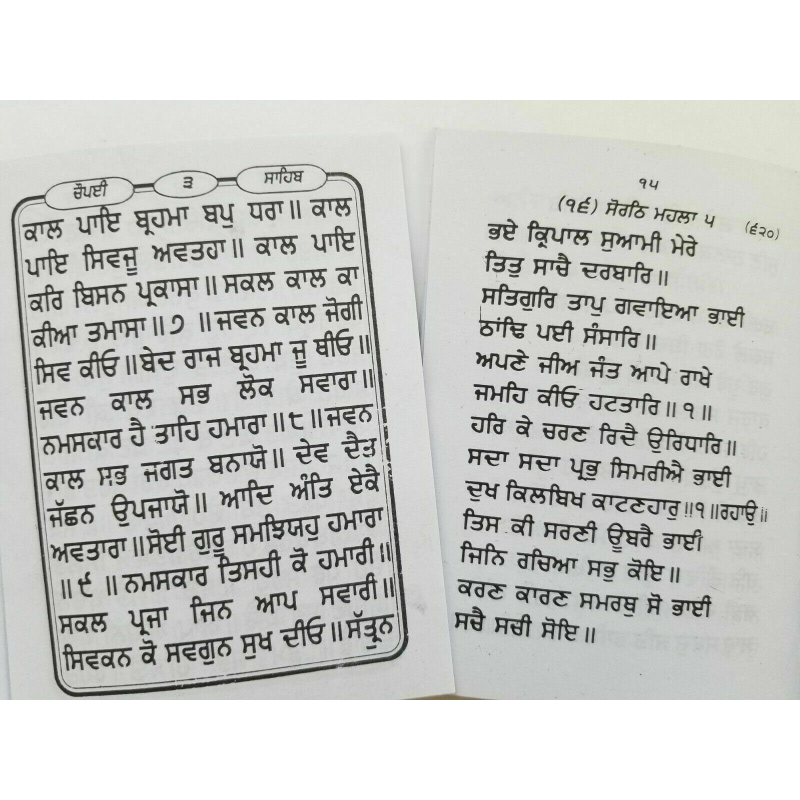 ਚੌਪਈ ੩ ਸਾਹਿਬ
ਕਾਲ ਪਾਇ ਬ੍ਰਹਮਾ ਬਪੁ ਧਰਾ॥ ਕਾਲ
ਪਾਇ ਸਿਵਜੂ ਅਵਤਹਾ॥ ਕਾਲ ਪਾਇ
ਕਰਿ ਬਿਸਨ ਪ੍ਰਕਾਸਾ॥ ਸਕਲ ਕਾਲ ਕਾ
ਕੀਆ ਤਮਾਸਾ॥੭॥ਜਵਨ ਕਾਲ ਜੋਗੀ
ਸਿਵ ਕੀਓ॥ਬੇਦ ਰਾਜ ਬ੍ਰਹਮਾ ਜੂ ਥੀਓ॥
ਜਵਨ ਕਾਲ ਸਭ ਲੋਕ ਸਵਾਰਾ॥
ਨਮਸਕਾਰ ਹੈ ਤਾਹਿ ਹਮਾਰਾ॥੮॥ਜਵਨ
ਕਾਲ ਸਭ ਜਗਤ ਬਨਾਯੋ॥ ਦੇਵ ਦੈਤ
ਜੱਛਨ ਉਪਜਾਯੋ॥ ਆਦਿ ਅੰਤਿ ਏਕੈ
ਅਵਤਾਰਾ॥ਸੋਈ ਗੁਰੂ ਸਮਝਿਯਹੁ ਹਮਾਰਾ
॥੯॥ਨਮਸਕਾਰ ਤਿਸਹੀ ਕੋ ਹਮਾਰੀ॥
ਸਕਲ ਪ੍ਰਜਾ ਜਿਨ ਆਪ ਸਵਾਰੀ॥
ਸਿਵਕਨ ਕੋ ਸਵਗੁਨ ਸੁਖ ਦੀਓ॥ਸੱਤ੍ਰੁਨ
੧੫
(੧੬) ਸੋਰਠਿ ਮਹਲਾ ੫ (੬੨੦)
ਭਏ ਕ੍ਰਿਪਾਲ ਸੁਆਮੀ ਮੇਰੇ
ਤਿਤੁ ਸਾਚੈ ਦਰਬਾਰਿ॥
ਸਤਿਗੁਰਿ ਤਾਪੁ ਗਵਾਇਆ ਭਾਈ
ਠਾਂਢਿ ਪਈ ਸੰਸਾਰਿ॥
ਅਪਣੇ ਜੀਅ ਜੰਤ ਆਪੇ ਰਾਖੇ
ਜਮਹਿ ਕੀਓ ਹਟਤਾਰਿ॥੧॥
ਹਰਿ ਕੇ ਚਰਣ ਰਿਦੈ ਉਰਿਧਾਰਿ॥
ਸਦਾ ਸਦਾ ਪ੍ਰਭੁ ਸਿਮਰੀਐ ਭਾਈ
ਦੁਖ ਕਿਲਬਿਖ ਕਾਟਣਹਾਰੁ॥੧॥ਰਹਾਉ॥
ਤਿਸ ਕੀ ਸਰਣੀ ਊਬਰੈ ਭਾਈ
ਜਿਨਿ ਰਚਿਆ ਸਭੁ ਕੋਇ॥
ਕਰਣ ਕਾਰਣ ਸਮਰਥੁ ਸੋ ਭਾਈ
ਸਚੈ ਸਚੀ ਸੋਇ॥